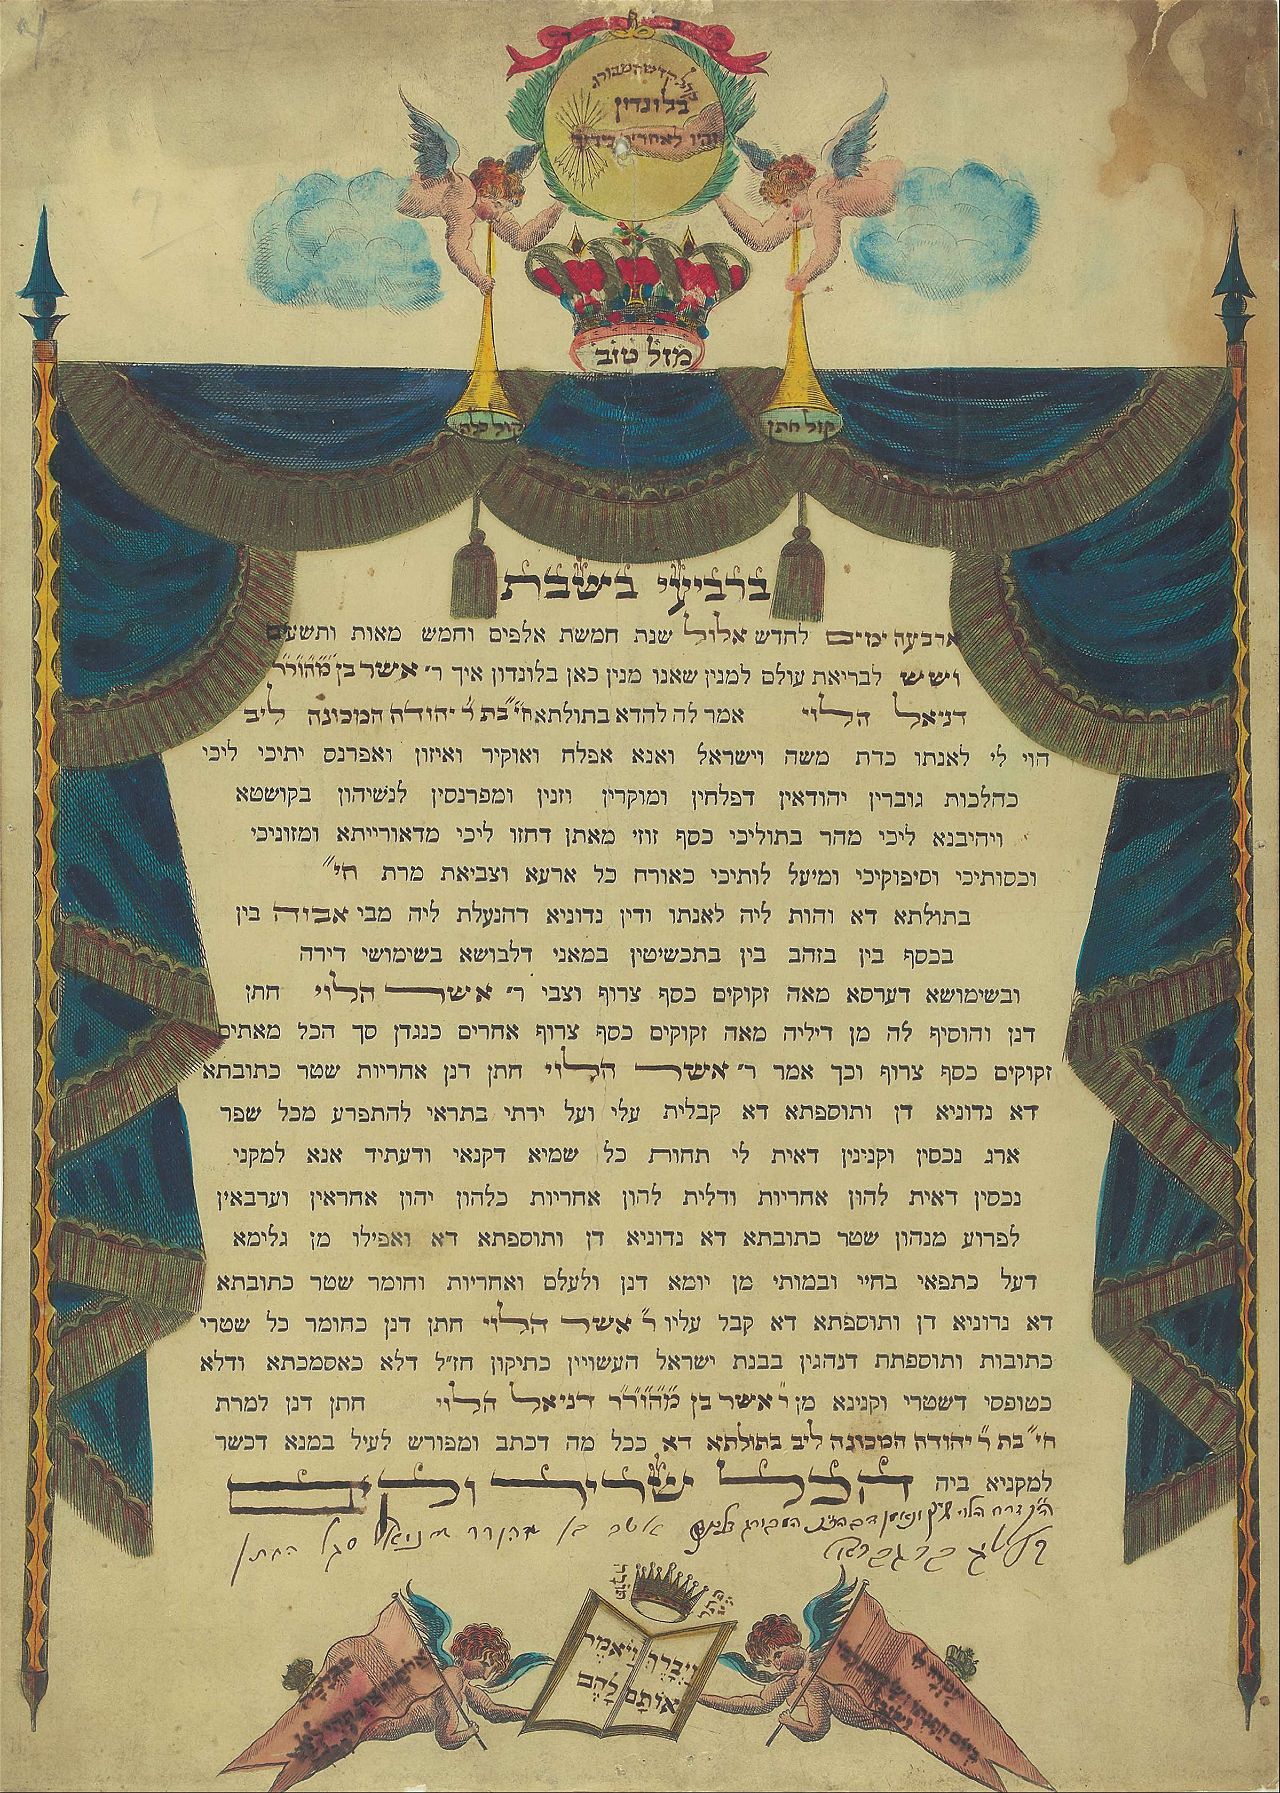 בלונדון
מזל טוב
קול כלה
קול חתן
ברביעי בשבת
ארבעה ימים לחדש אלול שנת חמשת אלפים וחמש מאות ותשעים
ושש לבריאת עולם למנין שאנו מנין כאן בלונדון איך ר׳ אשר בן מהור״ר
דניאל הלוי אמר לה להדא בתולתא חי׳ בת ר׳ יהודה המכונה ליב
הוי לי לאנתו כדת משה וישראל ואנא אפלח ואוקיר ואיזון ואפרנס יתיכי ליכי
כהלכות גוברין יהודאין דפלחין ומוקרין וזנין ומפרנסין לנשיהון בקושטא
ויהיבנא ליכי מהר בתוליכי כסף זוזי מאתן דחזו ליכי מדאורייתא ומזוניכי
וכסותיכי וסיפוקיכי ומיעל לותיכי כאורח כל ארעא וצביאת מרת חי׳
בתולתא דא והות ליה לאנתו ודין נדוניא דהנעלת ליה מבי אבוה בין
בכסף בין בזהב בין בתכשיטין במאני דלבושא בשימושי דירה
ובשימושא דערסא מאה זקוקים כסף צרוף וצבי ר׳ אשר הלוי חתן
דנן והוסיף לה מן דיליה מאה זקוקים כסף צרוף אחרים כנגדן סך הכל מאתים
זקוקים כסף צרוף וכך אמר ר׳ אשר הלוי חתן דנן אחריות שטר כתובתא
דא נדוניא דן ותוספתא דא קבלית עלי ועל ירתי בתראי להתפרע מכל שפר
ארג נכסין וקנינין דאית לי תחות כל שמיא דקנאי ודעתיד אנא למקני
נכסין דאית להון אחריות ודלית להון אחריות כלהון יהון אחראין וערבאין
לפרוע מנהון שטר כתובתא דא נדוניא דן ותוספתא דא ואפילו מן גלימא
דעל כתפאי בחיי ובמותי מן יומא דנן ולעלם ואחריות וחומר שטר כתובתא
דא נדוניא דן ותוספתא דא קבל עליו ר׳ אשר הלוי חתן דנן כחומר כל שטרי
כתובות ותוספתת דנהגין בבנת ישראל העשויין כתיקון חז״ל דלא כאסמכתא ודלא
כטופסי דשטרי וקנינא מן ר׳ אשר בן מהור״ר דניאל הלוי חתן דנן למרת
חי׳ בת ר׳ יהודה המכונה ליב בתולתא דא ככל מה דכתב ומפורש לעיל במנא דכשר
למקניא ביה הכל שריר וקים
אשר בן מהורר דניאל סגל החתן
ויברך ויאמר
אותם להם